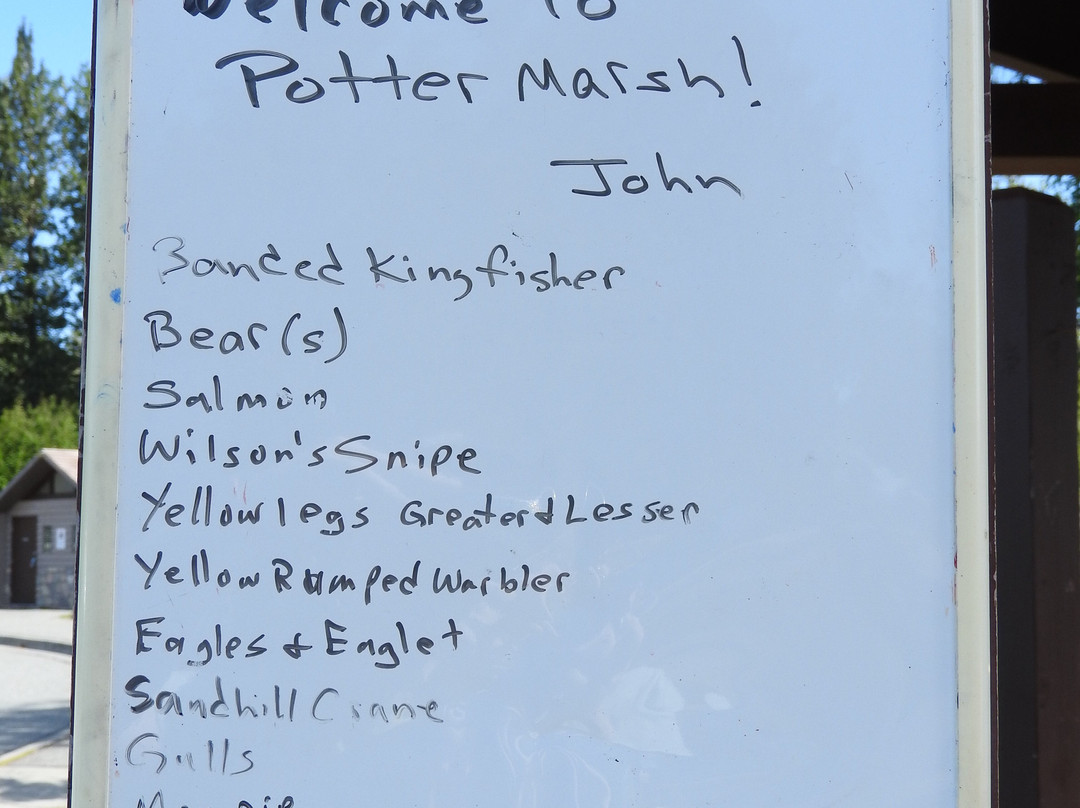 Welcome To
Potter Marsh!
John
Banded Kingfisher
Bear(s)
Salmon
Wilson's Snipe
Yellowlegs Greater & Lesser
Yellow Rumped Warbler
Eagles & Eaglet
Sandhill Crane
Gulls